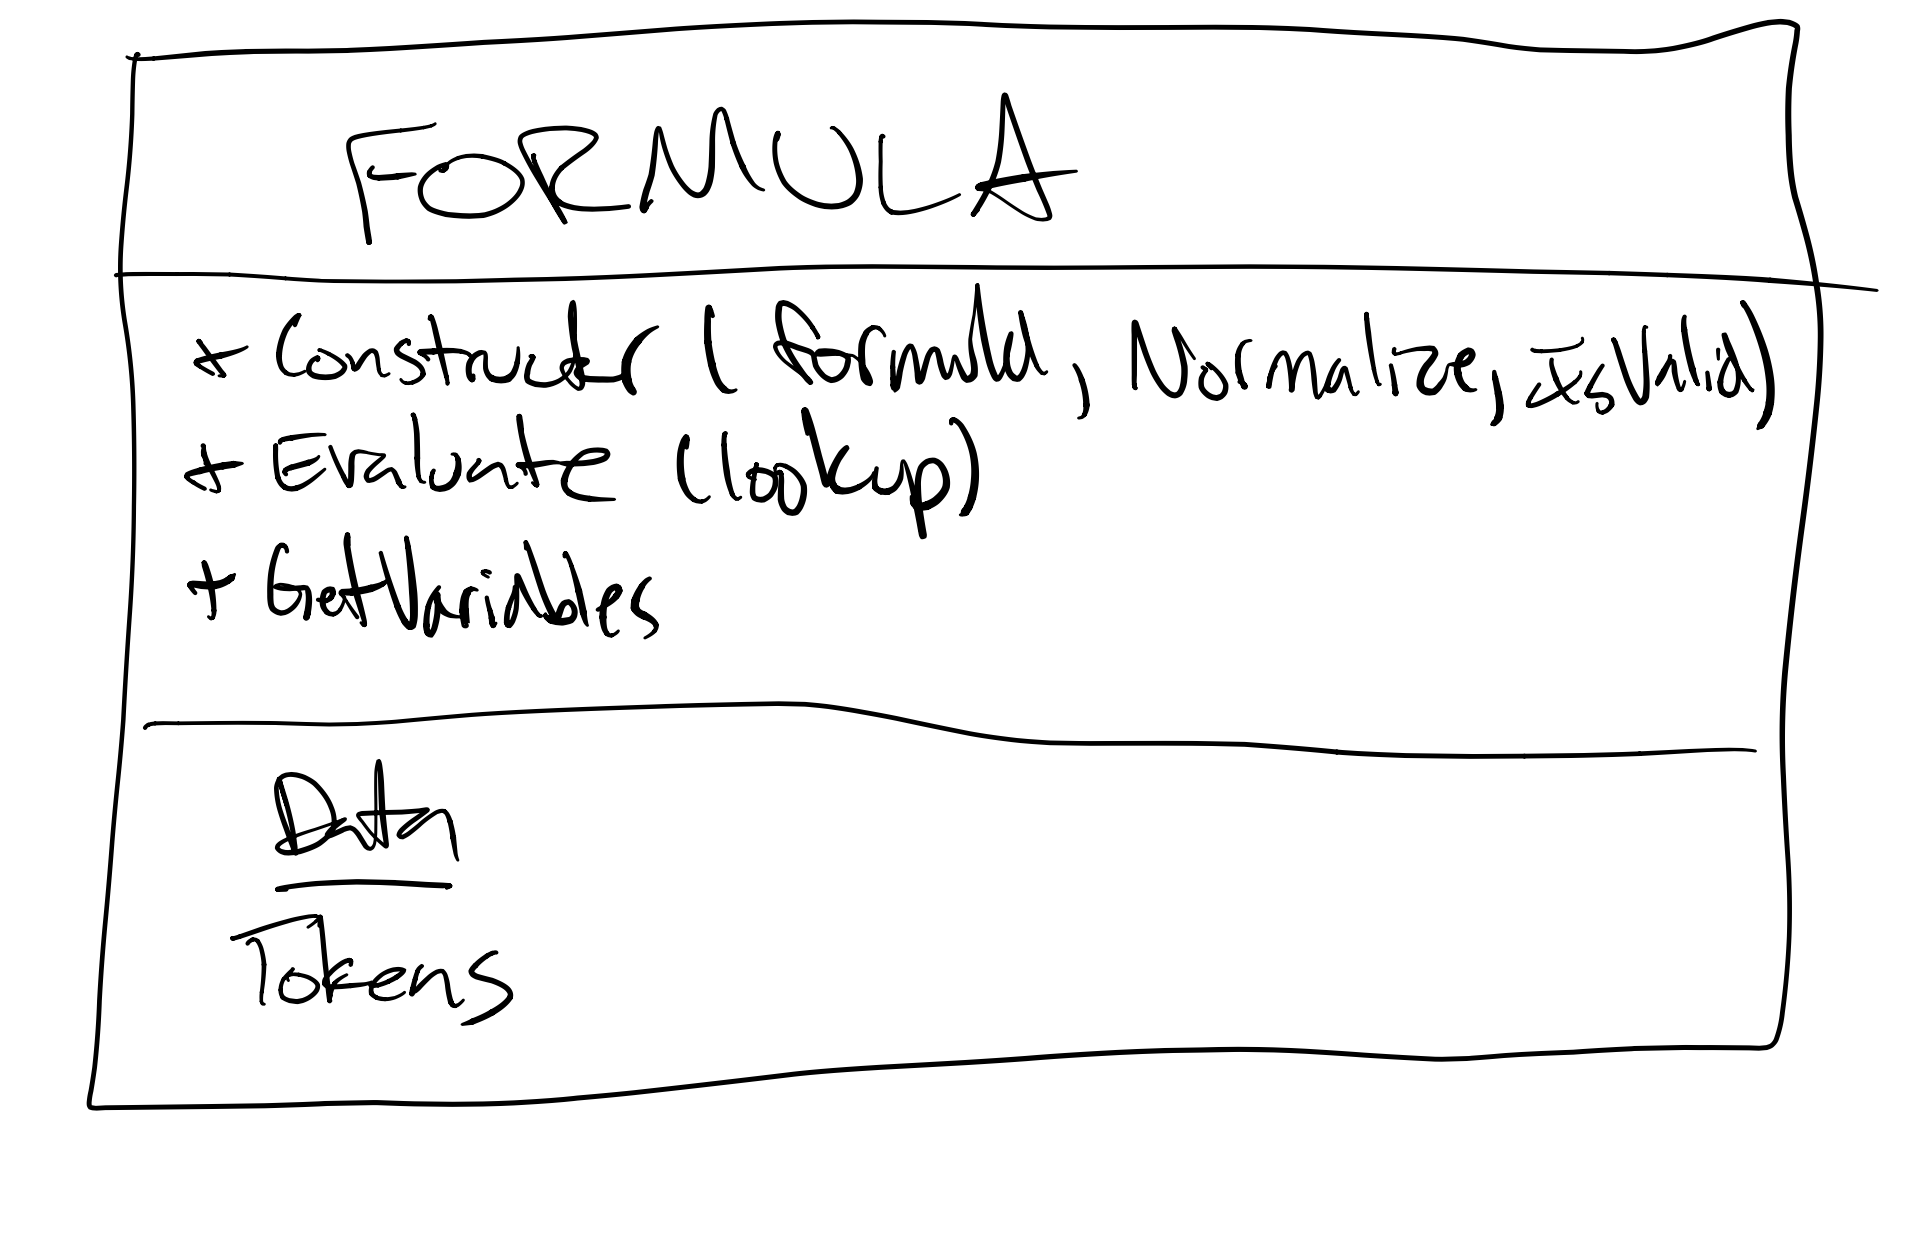 FORMULA
+ Constructer (formula, Normalize, IsValid)
+ Evaluate (lookup)
+ GetVariables
Data
Tokens